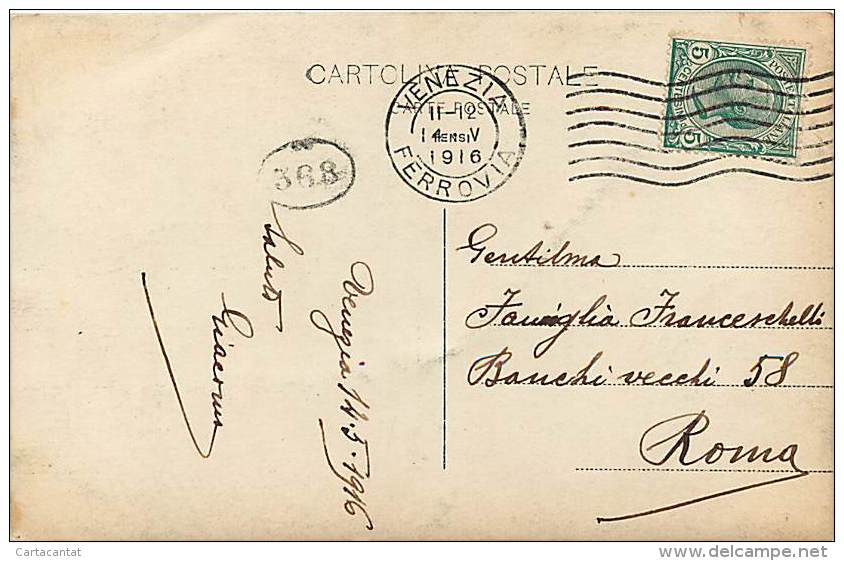 CARTOLINA POSTALE
CARTE POSTALE
VENEZIA
11-12
14 V
1916
FERROVIA
POSTE ITALIANE
5 CENTESIMI 5
368
Venezia 14.5.1916
Saluti
Giacomo
Gentilma
Famiglia Franceschelli
Banchi vecchi 58
Roma
Cartacantat
www.delcampe.net